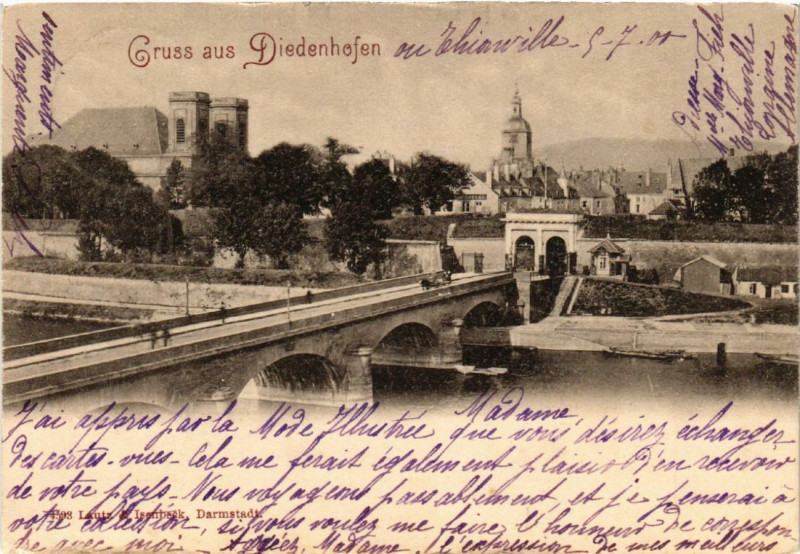 Gruss aus Diedenhofen
ou Thionville - 5-7.00
Thionville
Lorraine
Allemagne
Madame,
J'ai appris par la Mode Illustrée que vous désirez échanger
des cartes-vues - Cela me ferait également plaisir d'en recevoir
de votre pays - Nous voyageons passablement, et je penserai à
votre collection, si vous voulez me faire l'honneur de correspon
7193 Lautz & Isenbeck, Darmstadt.
dre avec moi - Agréez, Madame, l'expression de mes meilleurs
sentiments